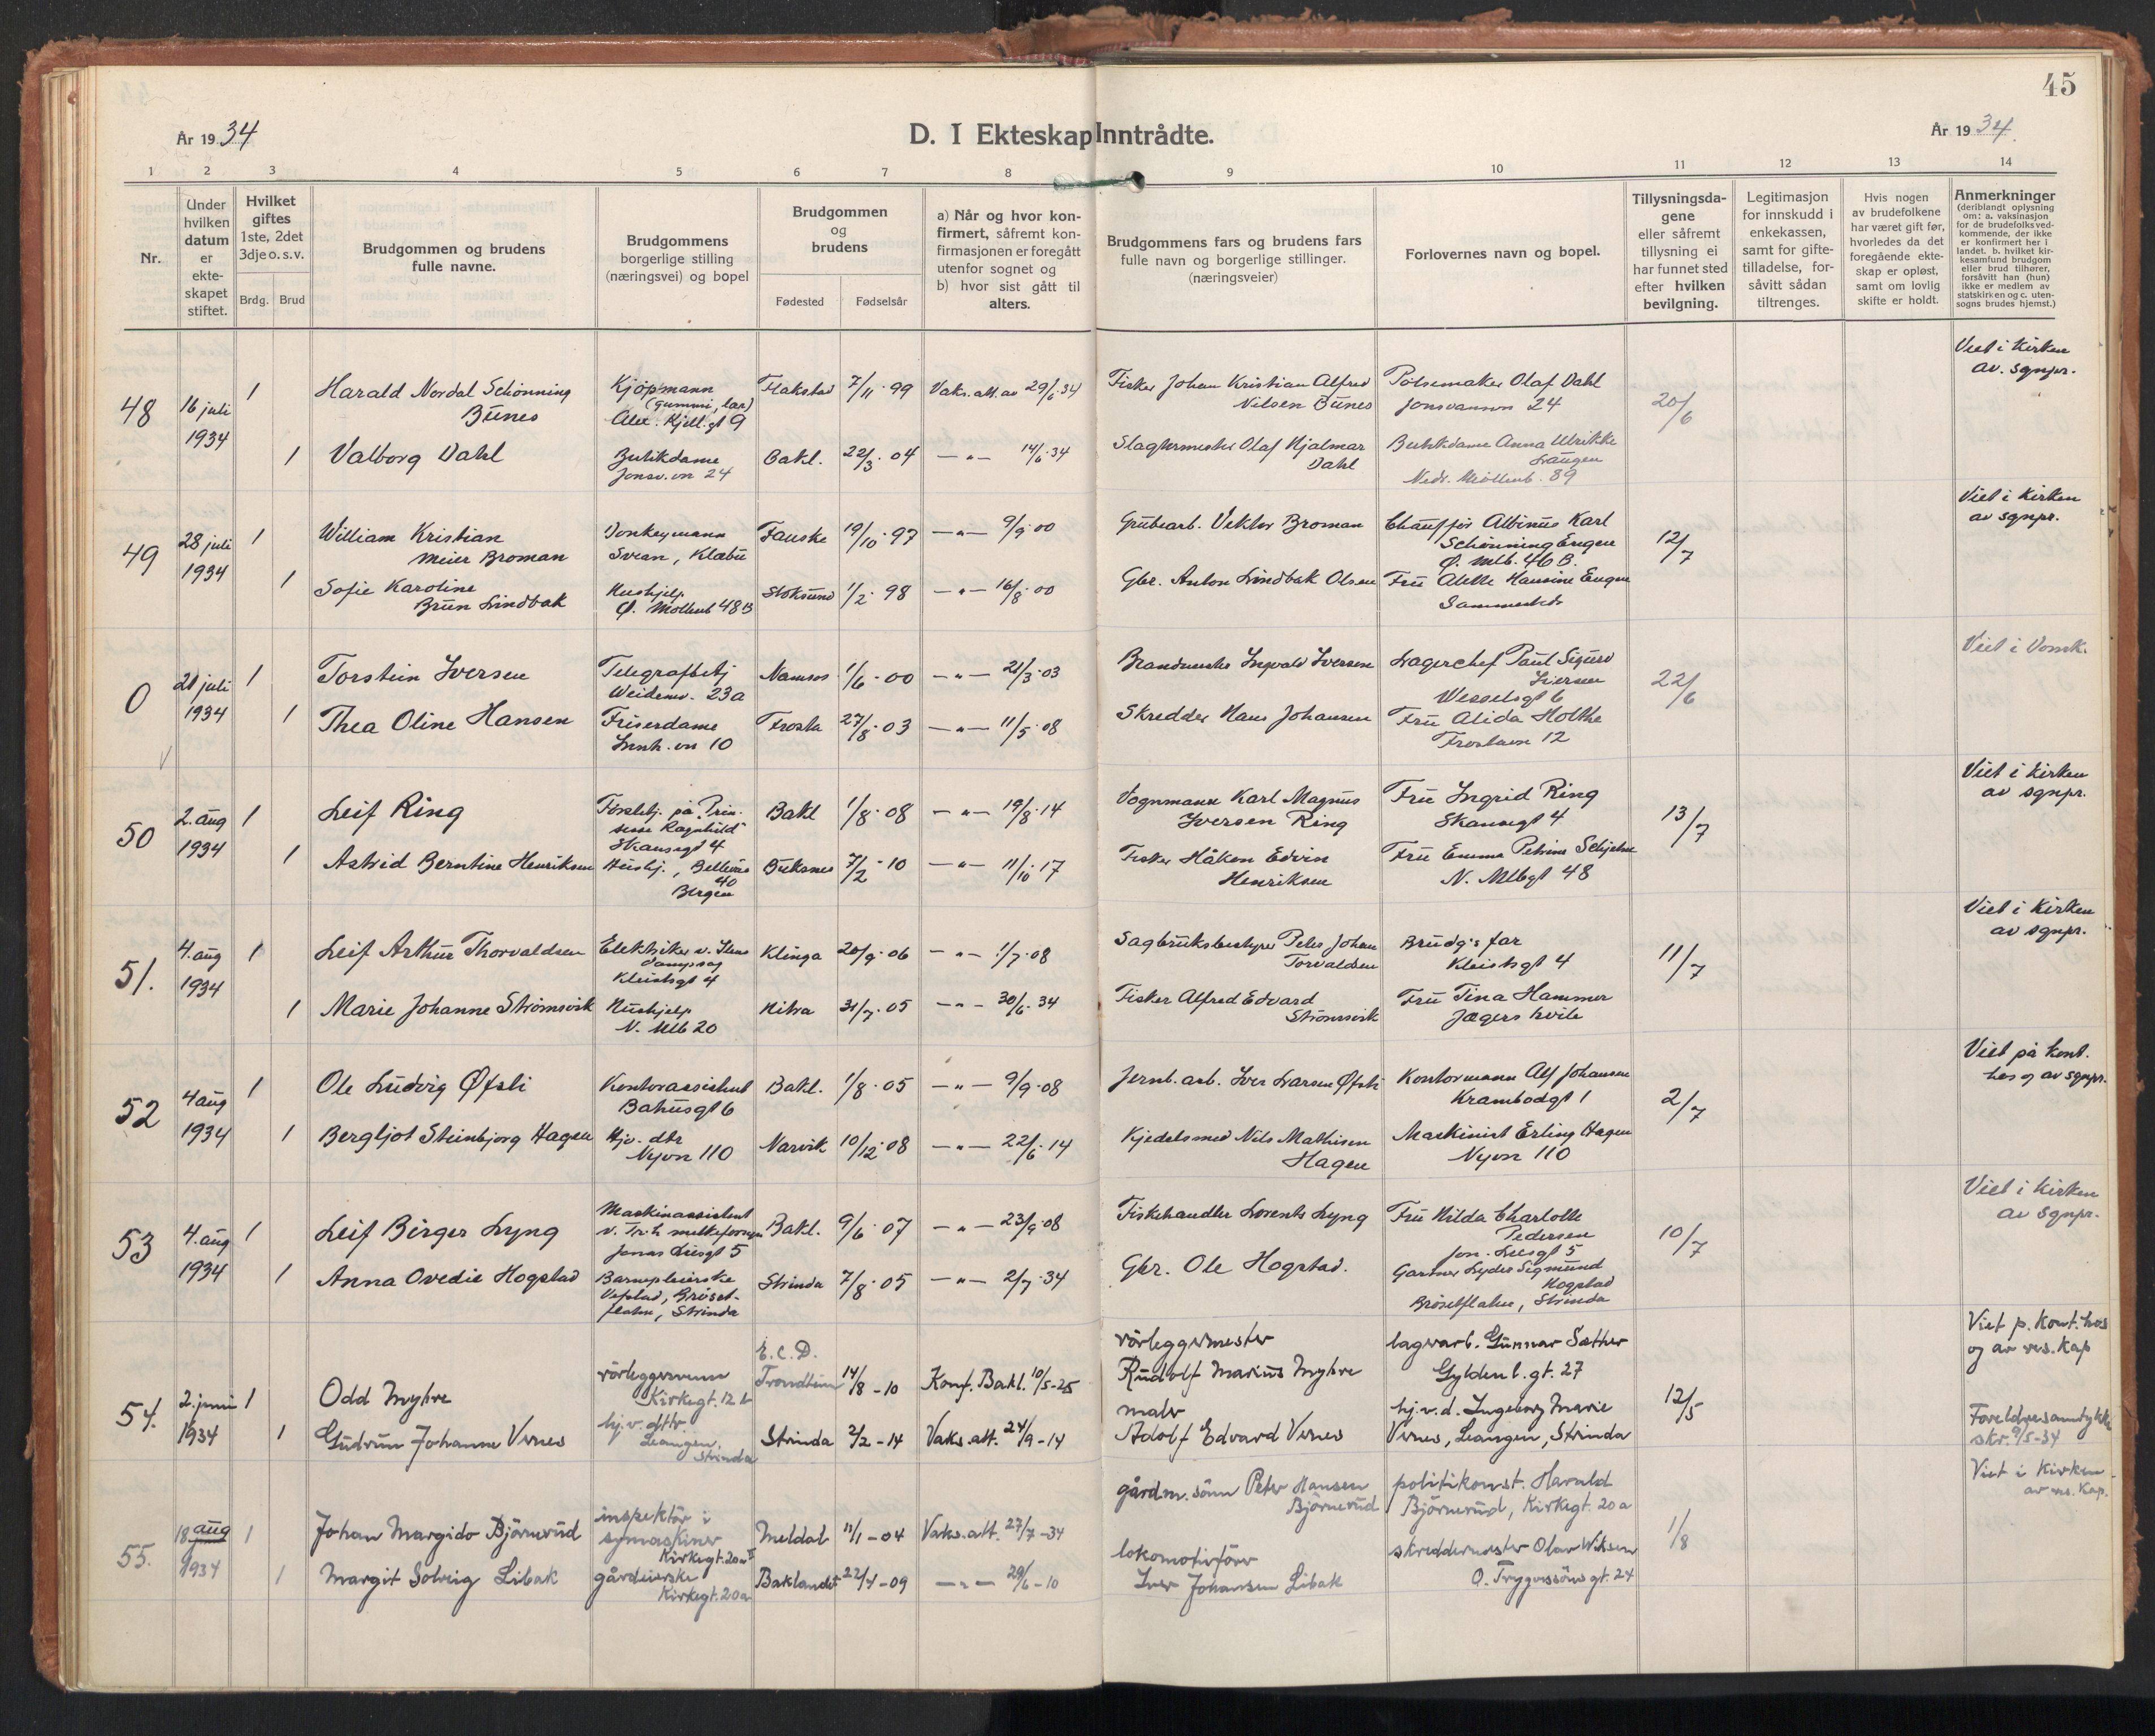 45
År 1934
D. I Ekteskap Inntrådte.
År 1934.
1 2 3 4 5 6 7 8 9 10 11 12 13 14
Nr.
Under hvilken datum er ekte-skapet stiftet.
Hvilket giftes 1ste, 2det 3dje o. s. v.
Brdg. Brud
Brudgommen og brudens fulle navne.
Brudgommens borgerlige stilling (næringsvei) og bopel
Brudgommen og brudens
Fødested Fødselsår
a) Når og hvor kon-firmert, såfremt kon-firmasjonen er foregått utenfor sognet og b) hvor sist gått til alters.
Brudgommens fars og brudens fars fulle navn og borgerlige stillinger. (næringsveier)
Forlovernes navn og bopel.
Tillysningsda-gene eller såfremt tillysning ei har funnet sted efter hvilken bevilgning.
Legitimasjon for innskudd i enkekassen, samt for gifte-tilladelse, for-såvitt sådan tiltrenges.
Hvis nogen av brudefolkene har været gift før, hvorledes da det foregående ekte-skap er opløst, samt om lovlig skifte er holdt.
Anmerkninger (deriblandt oplysning om: a. vaksinasjon for de brudefolksved-kommende, der ikke er konfirmert her i landet. b. hvilket kir-kesamfund brudgom eller brud tilhører, forsåvitt han (hun) ikke er medlem av statskirken og c. uten-sogns brudes hjemst.)
48 16 juli 1934 1 Harald Nordal Schönning Bünes Kjöpmann (gummi, lær) Alex. Kjell.gt 9 Flakstad 7/11-99 Vaks.att. av 29/6.34 Fisker Johan Kristian Alfred Nilsen Bünes Pölsemaker Olaf Dahl Jonsvannsv 24 20/6 Viet i Kirken av. sgnpr.
1 Valborg Dahl Butikdame Jonsv.vn 24 Bakl. 22/3.04 —"— 14/6.34 Slagtermester Olaf Hjalmar Dahl Butikdame Anna Ulrikke Haugen Nedr. Möllenb. 89
49 28 juli 1934 1 William Kristian Meier Broman Donkeymann Svean, Klæbu Fauske 19/10-97 —"— 9/9.00 Grubearb. Vektor Broman Chauffør Albinus Karl Schönning Engen Ø. Mlb. 46 B. 12/7 Viet i Kirken av sgnpr.
1 Sofie Karoline Brun Lindbak Hushjelp Ø. Mollenb 48B Stoksund 1/2-98 —"— 16/8.00 Gbr. Anton Lindbak Olsen Fru Hansine Engen Sammesteds
0 21 juli 1934 1 Torstein Iversen Telegrafbetj Weidemv. 23a Namsos 1/6-00 —"— 21/3.03 Ingvald Iversen Lagerchef Paul Sigurd Iversen Wesselsgt 6 22/6 Viet i Domk.
1 Thea Oline Hansen Friserdame Innh.vn 10 Frosta 27/8-03 —"— 11/5.08 Skredder Hans Johansen Fru Alida Holthe Frostavn 12
50 2. aug 1934 1 Leif Ring på "Prin-sesse Ragnhild" Skansegt 4 Bakl 1/8-08 —"— 19/8.14 Vognmann Karl Magnus Iversen Ring Fru Ingrid Ring Skansegt 4 13/7 Viet i Kirken av sgnpr.
1 Astrid Berntine Henriksen Hushj., Bellevue 40 Bergen Buksnes 7/2-10 —"— 11/10.17 Fisker Håkon Edvin Henriksen Fru Emma Petrine Schjelne N. Mlbgt 48
51. 4. aug 1934 1 Leif Arthur Thorvaldsen Elektriker v. Ilens dampsag Kleistsgt 4 Klinga 20/9.06 —"— 1/7.08 Sagbruksbestyrer Peter Johan Torvaldsen Brudg's far Kleistsgt 4 11/7 Viet i Kirken av sgnpr.
1 Marie Johanne Strömsvik Hushjelp N. Mlb 20 Hitra 31/7.05 —"— 30/6.34 Fisker Alfred Edvard Strömsvik Fru Tina Hammer Jægers hvile
52 4 aug 1934 1 Ole Ludvig Øfsti Kontorassistent Bahusgt 6 Bakl. 1/8-05 —"— 9/9.08 Jernb.arb. Iver Larsen Øfsti Kontormann Alf Johansen Krambodgt 1 2/7 Viet på kont. hos og av sgnpr.
1 Bergljot Steinbjorg Hagen Hjv. dtr Nyvn 110 Narvik 10/12-08 —"— 22/6.14 Kjedelsmed Nils Mathisen Hagen Maskinist Erling Hagen Nyvn 110
53 4. aug 1934 1 Leif Birger Lyng Maskinassistent v. Tr.h melkeforsyn Jonas Liesgt 5 Bakl. 9/6-07 —"— 23/9.08 Fiskehandler Lorents Lyng Fru Hilda Charlotte Pedersen Jon. Liesgt 5 10/7 Viet i Kirken av sgnpr.
1 Anna Ovedie Hogstad Barnepleierske Brøset-flaten, Strinda Strinda 7/8-05 —"— 2/7.34 Gbr. Ole Hogstad. Gartner Sigmund Hogstad Brøsetflaten, Strinda
54. 2. juni 1934 1 Odd Myhre rörleggersvenn Kirkegt. 12 b E.C.D. Trondheim 14/8-10 Konf. Bakl. 10/5-25 rörleggermester Rudolf Marius Myhre lagerarb. Gunnar Sæther Gyldenl. gt. 27 12/5 Viet p. Kont. hos og av res. Kap
1 Gudrun Johanne Vernes hj.v. dttr. Leangen, Strinda Strinda 2/2-14 Vaks.att. 24/9-14 maler Adolf Edvard Vernes hj.v.d. Ingeborg Marie Vernes, Leangen, Strinda Foreldresamtykke skr. 9/5-34
55. 18 aug 1934 1 Johan Margido Björnerud inspektör i symaskiner Kirkegt. 20a Meldal 11/1-04 Vaks.att. 27/7-34 gårdm. sönn Peter Hansen Björnerud politikonst. Harald Björnerud, Kirkegt. 20a 1/8 Viet i Kirken av res. Kap.
1 Margit Solveig Libak gårdeierske Kirkegt. 20a Baklandet 22/4-09 —"— 29/6-10 lokomotivförer Iver Johansen Libak skreddermester Olav Wiksen O. Trygvessöns gt. 24